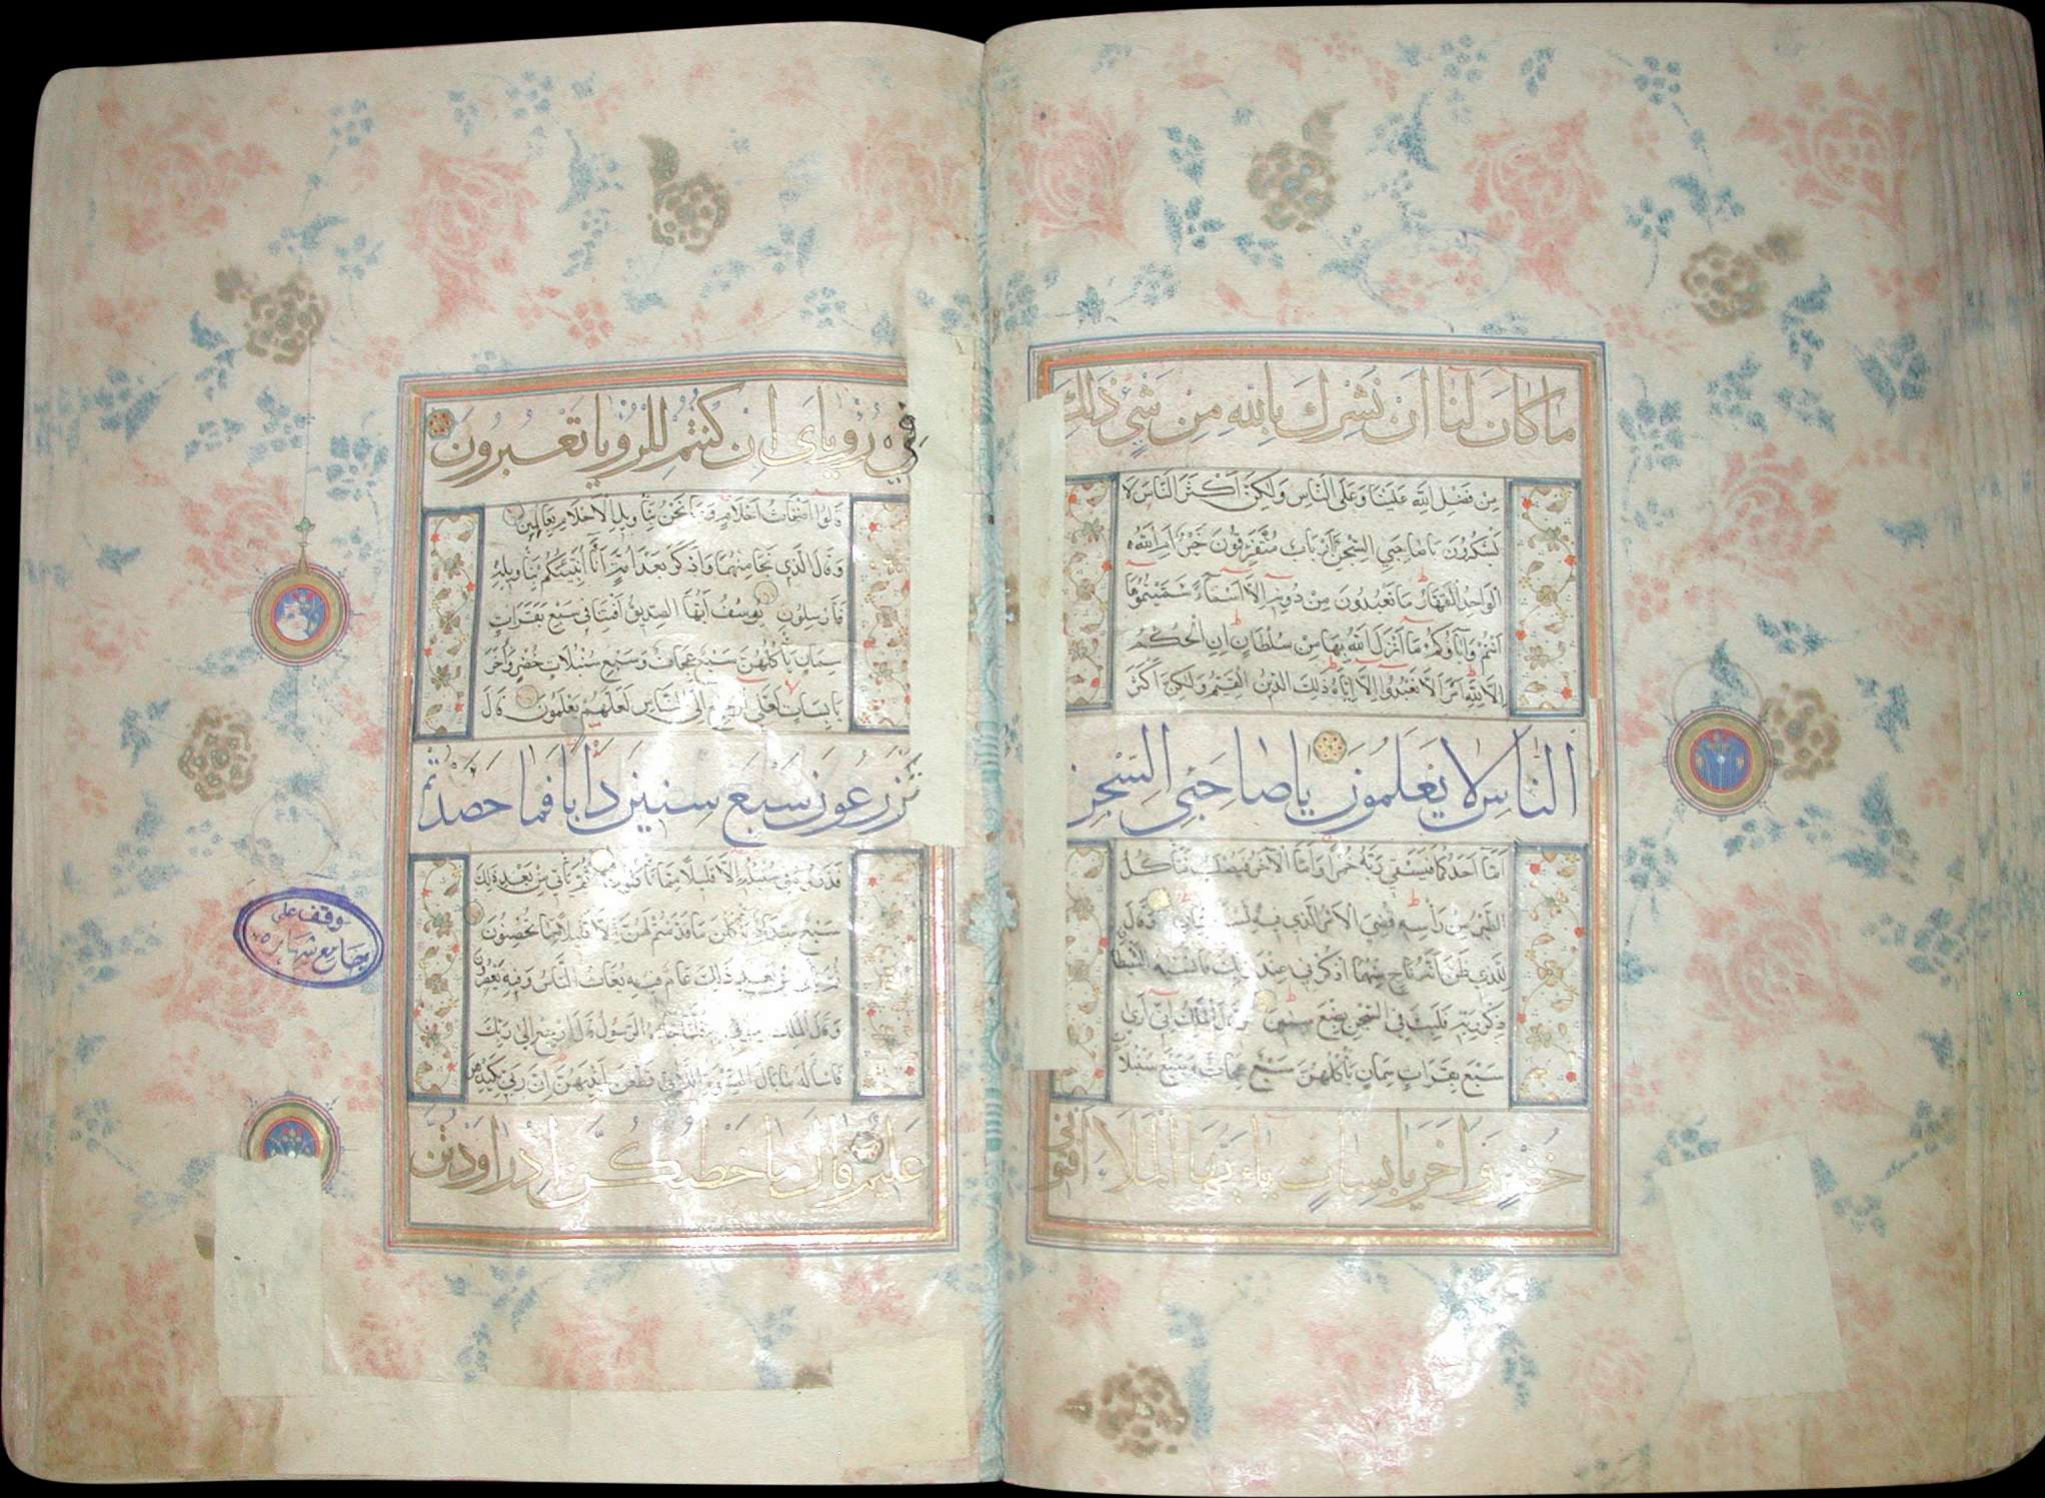 مَا كَانَ لَنَا اَنْ نُشْرِكَ بِاللهِ مِنْ شَيْءٍ ذٰلِكَ
مِنْ فَضْلِ اللهِ عَلَيْنَا وَعَلَى النَّاسِ وَلٰكِنَّ اَكْثَرَ النَّاسِ لَا
يَشْكُرُونَ يَا صَاحِبَيِ السِّجْنِ ءَاَرْبَابٌ مُتَفَرِّقُونَ خَيْرٌ اَمِ اللهُ
الْوَاحِدُ الْقَهَّارُ مَا تَعْبُدُونَ مِنْ دُونِهِ اِلَّا اَسْمَاءً سَمَّيْتُمُوهَا
اَنْتُمْ وَاٰبَاؤُكُمْ مَا اَنْزَلَ اللهُ بِهَا مِنْ سُلْطَانٍ اِنِ الْحُكْمُ
اِلَّا لِلّٰهِ اَمَرَ اَلَّا تَعْبُدُوا اِلَّا اِيَّاهُ ذٰلِكَ الدِّينُ الْقَيِّمُ وَلٰكِنَّ اَكْثَرَ
النَّاسِ لَا يَعْلَمُونَ يَا صَاحِبَيِ السِّجْنِ
اَمَّا اَحَدُكُمَا فَيَسْقِي رَبَّهُ خَمْرًا وَاَمَّا الْاٰخَرُ فَيُصْلَبُ فَتَأْكُلُ
الطَّيْرُ مِنْ رَأْسِهِ قُضِيَ الْاَمْرُ الَّذِي فِيهِ تَسْتَفْتِيَانِ وَقَالَ
لِلَّذِي ظَنَّ اَنَّهُ نَاجٍ مِنْهُمَا اذْكُرْنِي عِنْدَ رَبِّكَ فَاَنْسٰيهُ الشَّيْطَا
ذِكْرَ رَبِّهِ فَلَبِثَ فِي السِّجْنِ بِضْعَ سِنِينَ وَقَالَ الْمَلِكُ اِنِّي اَرٰى
سَبْعَ بَقَرَاتٍ سِمَانٍ يَأْكُلُهُنَّ سَبْعٌ عِجَافٌ وَسَبْعَ سُنْبُلَا
خُضْرٍ وَاُخَرَ يَابِسَاتٍ يَا اَيُّهَا الْمَلَأُ اَفْتُونِي
فِي رُؤْيَايَ اِنْ كُنْتُمْ لِلرُّؤْيَا تَعْبُرُونَ
قَالُوا اَضْغَاثُ اَحْلَامٍ وَمَا نَحْنُ بِتَأْوِيلِ الْاَحْلَامِ بِعَالِمِينَ
وَقَالَ الَّذِي نَجَا مِنْهُمَا وَادَّكَرَ بَعْدَ اُمَّةٍ اَنَا اُنَبِّئُكُمْ بِتَأْوِيلِهِ
فَاَرْسِلُونِ يُوسُفُ اَيُّهَا الصِّدِّيقُ اَفْتِنَا فِي سَبْعِ بَقَرَاتٍ
سِمَانٍ يَأْكُلُهُنَّ سَبْعٌ عِجَافٌ وَسَبْعِ سُنْبُلَاتٍ خُضْرٍ وَاُخَرَ
يَابِسَاتٍ لَعَلِّي اَرْجِعُ اِلَى النَّاسِ لَعَلَّهُمْ يَعْلَمُونَ قَالَ
تَزْرَعُونَ سَبْعَ سِنِينَ دَاَبًا فَمَا حَصَدْتُمْ
فَذَرُوهُ فِي سُنْبُلِهِ اِلَّا قَلِيلًا مِمَّا تَأْكُلُونَ ثُمَّ يَأْتِي مِنْ بَعْدِ ذٰلِكَ
سَبْعٌ شِدَادٌ يَأْكُلْنَ مَا قَدَّمْتُمْ لَهُنَّ اِلَّا قَلِيلًا مِمَّا تُحْصِنُونَ
ثُمَّ يَأْتِي مِنْ بَعْدِ ذٰلِكَ عَامٌ فِيهِ يُغَاثُ النَّاسُ وَفِيهِ يَعْصِرُونَ
وَقَالَ الْمَلِكُ ائْتُونِي بِهِ فَلَمَّا جَاءَهُ الرَّسُولُ قَالَ ارْجِعْ اِلٰى رَبِّكَ
فَاسْأَلْهُ مَا بَالُ النِّسْوَةِ اللَّاتِي قَطَّعْنَ اَيْدِيَهُنَّ اِنَّ رَبِّي بِكَيْدِهِنَّ
عَلِيمٌ قَالَ مَا خَطْبُكُنَّ اِذْ رَاوَدْتُنَّ
وقف على
جامع شهار